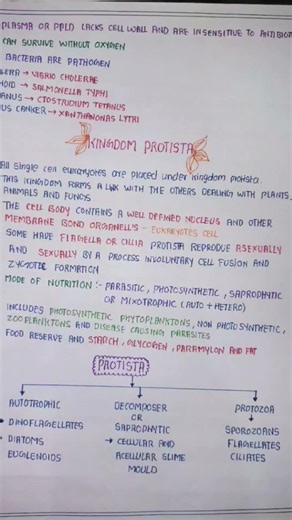 PLASMA OR PPLO LACKS CELL WALL AND ARE INSENSITIVE TO ANTIBIOT
CAN SURVIVE WITHOUT OXYGEN
BACTERIA ARE PATHOGEN
→ VIBRIO CHOLERAE
→ SALMONELLA TYPHI
ANUS → CTOSTRIDIUM TETANUS
US CANKER → XANTHANONAS
KINGDOM PROTISTA
All single cell eukaryotes are placed under kingdom protista.
THIS KINGDOM FORMS A LINK WITH THE OTHERS DEALING WITH PLANTS,
ANIMALS AND FUNGUS
THE CELL BODY CONTAINS A WELL DEFINED NUCLEUS AND OTHER
MEMBRANE BOND ORGANELL'S - EUKARYOTES CELL
SOME HAVE FLAGELLA OR CILIA PROTISTA REPRODUCE ASEXUALLY
AND SEXUALLY BY A PROCESS INVOLUNTARY CELL FUSION AND
ZYGOTIC FORMATION
MODE OF NUTRITION :- PARASITIC, PHOTOSYNTHETIC, SAPROPHYTIC
OR MIXOTROPHIC (AUTO + HETERO)
INCLUDES PHOTOSYNTHETIC PHYTOPLANKTONS, NON PHOTOSYNTHETIC,
ZOOPLANKTONS AND DISEASE CAUSING PARASITES
FOOD RESERVE AND STARCH, GLYCOGEN, PARAMYLON AND FAT
PROTISTA
AUTOTROPHIC DECOMPOSER PROTOZOA
OR
• DINOFLAGELLATES SAPROPHYTIC → SPOROZOANS
• DIATOMS → CELLULAR AND FLAGELLATES
EUGLENOIDS ACELLULAR SLIME CILIATES
MOULD